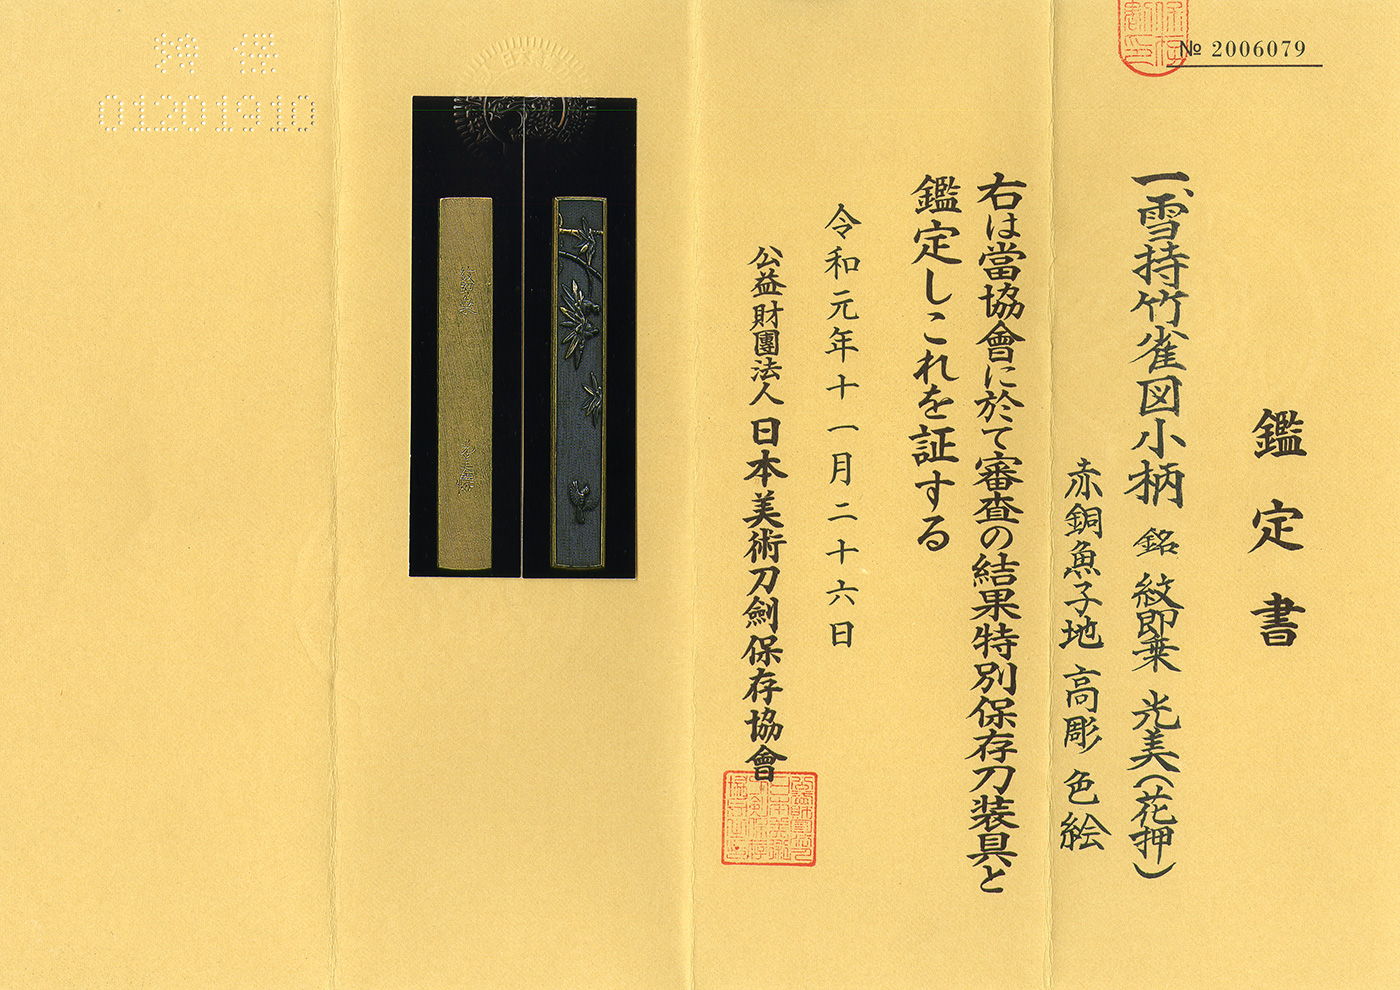 № 2006079
鑑定書
一、雪持竹雀図小柄 銘 紋即乗 光美(花押)
赤銅魚子地 高彫 色絵
右は當協會に於て審査の結果特別保存刀装具と
鑑定しこれを証する
令和元年十一月二十六日
公益財團法人 日本美術刀劍保存協會
01201910